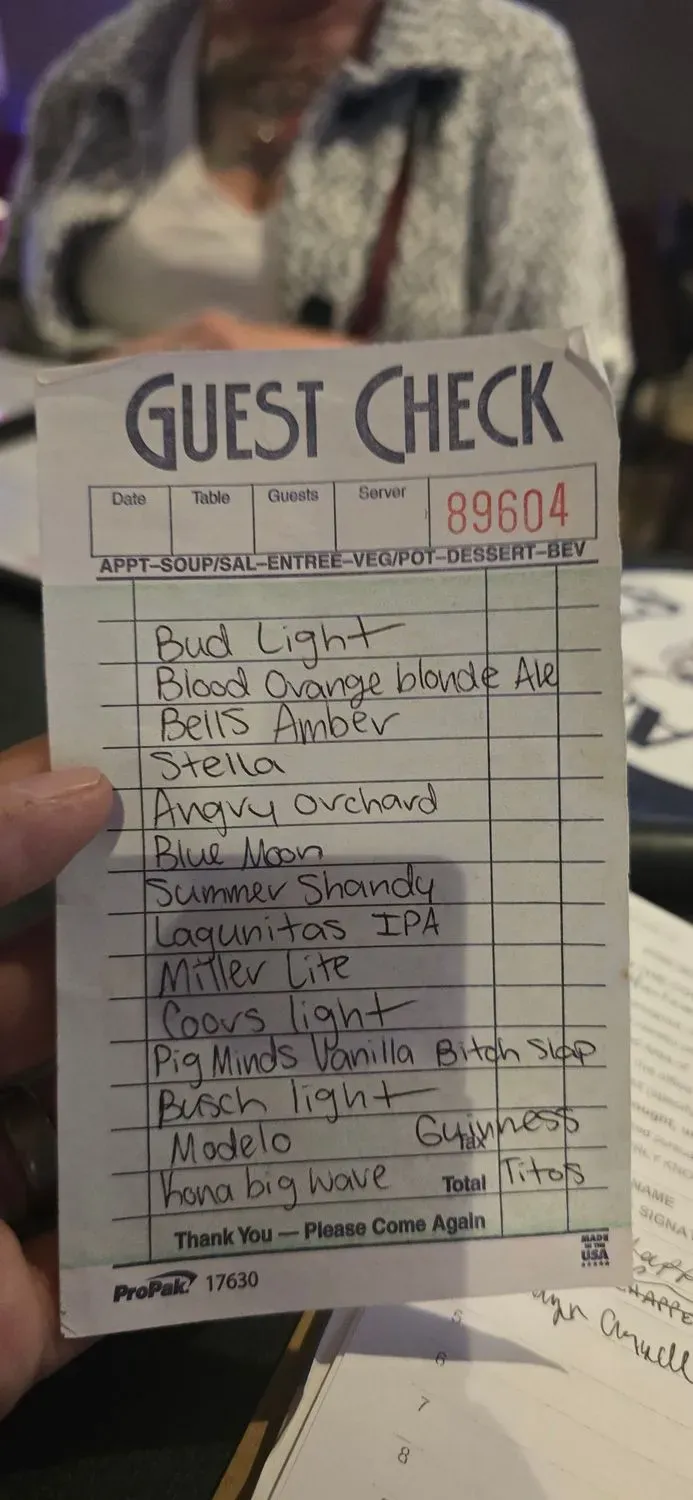 GUEST CHECK
Date Table Guests Server 89604
APPT–SOUP/SAL–ENTREE–VEG/POT–DESSERT–BEV
Bud Light
Blood Orange blonde Ale
Bells Amber
Stella
Angry Orchard
Blue Moon
Summer Shandy
Lagunitas IPA
Miller Lite
Coors light
Pig Minds Vanilla Bitch Slap
Busch light
Modelo Guinness
Tax
Kona big wave Total Titos
Thank You — Please Come Again
MADE IN THE USA
ProPak 17630
NAME
SIGNA
6
7
8